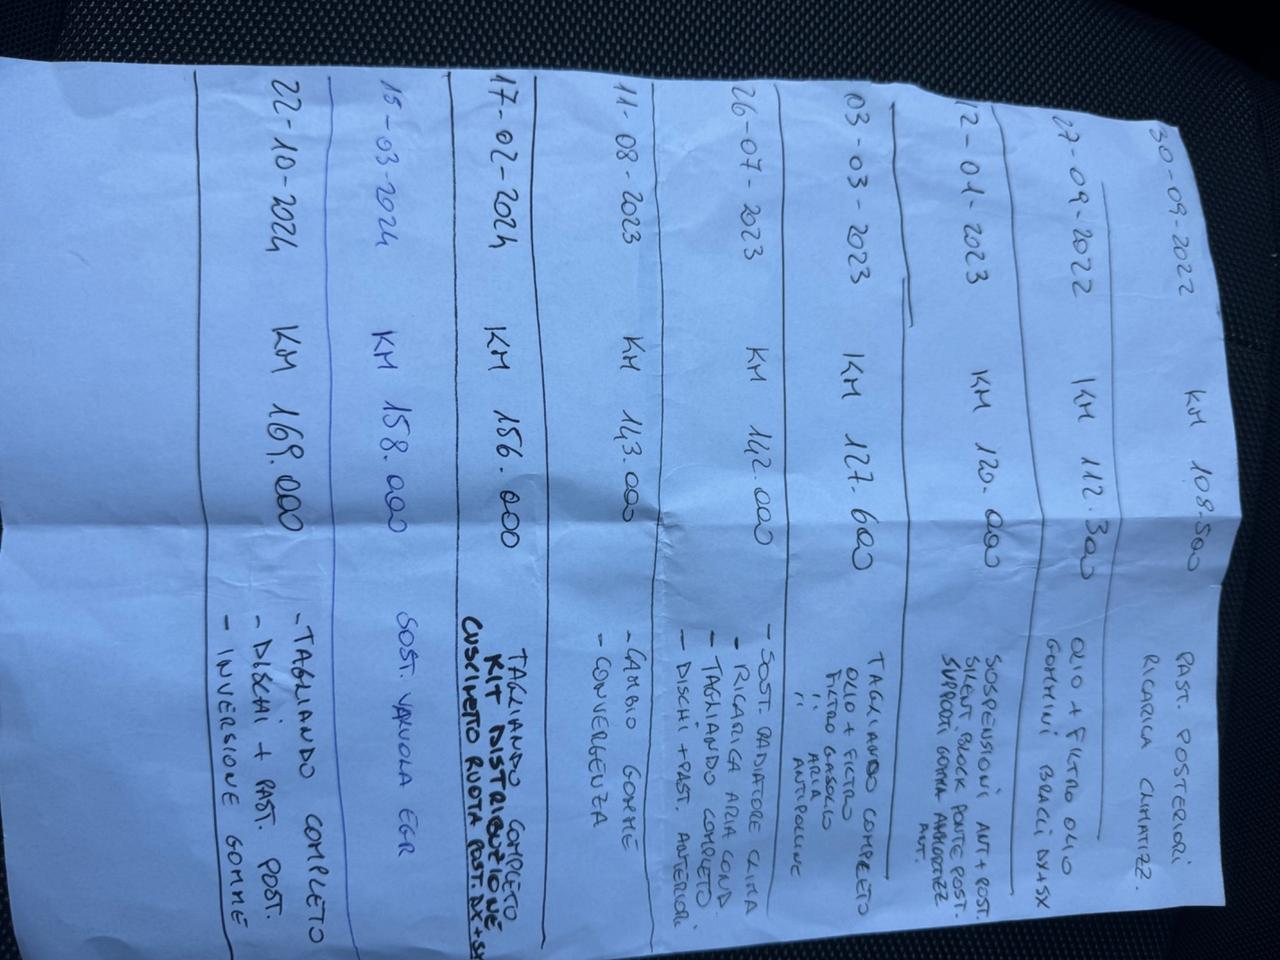 30-09-2022 KM 108.500 PAST. POSTERIORI
RICARICA CLIMATIZZ.
27-09-2022 KM 112.300 OLIO + FILTRO OLIO
GOMMINI BRACCI DX+SX
12-01-2023 KM 120.000 SOSPENSIONI ANT+POST.
SILENT BLOCK PONTE POST.
SUPPORTI GOMMA AMMORTIZZ
ANT.
03-03-2023 KM 127.600 TAGLIANDO COMPLETO
OLIO + FILTRO
FILTRO GASOLIO
" ARIA
" ANTIPOLLINE
26-07-2023 KM 142.000 - SOST. RADIATORE CLIMA
- RICARICA ARIA COND.
- TAGLIANDO COMPLETO
- DISCHI + PAST. ANTERIORI
11-08-2023 KM 143.000 - CAMBIO GOMME
- CONVERGENZA
17-02-2024 KM 156.000 TAGLIANDO COMPLETO
KIT DISTRIBUZIONE
CUSCINETTO RUOTA POST. DX+SX
15-03-2024 KM 158.000 SOST. VALVOLA EGR
22-10-2024 KM 169.000 - TAGLIANDO COMPLETO
- DISCHI + PAST. POST.
- INVERSIONE GOMME